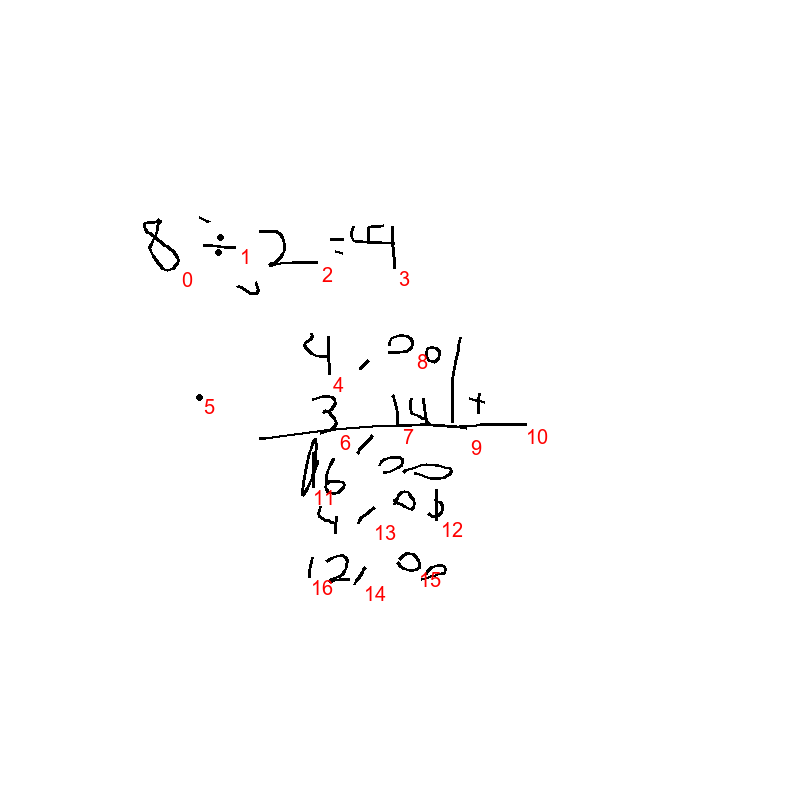 8 ÷ 2 = 4
0 1 2 3
4,00
4 8
5 3 14 +
6 7 9 10
16,00
11
4,00
13 12
12,00
16 14 15